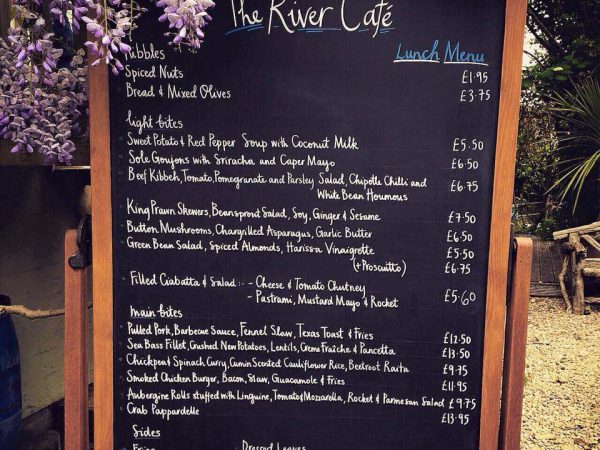 The River Café
Lunch Menu
Nibbles
Spiced Nuts £1.95
Bread & Mixed Olives £3.75
light bites
Sweet Potato & Red Pepper Soup with Coconut Milk £5.50
Sole Goujons with Sriracha and Caper Mayo £6.50
Beef Kibbeh, Tomato, Pomegranate and Parsley Salad, Chipotle Chilli and £6.75
White Bean Houmous
King Prawn Skewers, Beansprout Salad, Soy, Ginger & Sesame £7.50
Button Mushrooms, Chargrilled Asparagus, Garlic Butter £6.50
Green Bean Salad, Spiced Almonds, Harissa Vinaigrette £5.50
(+Proscuitto) £6.75
Filled Ciabatta & Salad :- - Cheese & Tomato Chutney
- Pastrami, Mustard Mayo & Rocket £5.60
main bites
Pulled Pork, Barbecue Sauce, Fennel Slaw, Texas Toast & Fries £12.50
Sea Bass Fillet, Crushed New Potatoes, Lentils, Créme Fraîche & Pancetta £13.50
Chickpea & Spinach Curry, Cumin Scented Cauliflower Rice, Beetroot Raita £9.75
Smoked Chicken Burger, Bacon, Slaw, Guacamole & Fries £11.95
Aubergine Rolls stuffed with Linguine, Tomato & Mozzarella, Rocket & Parmesan Salad £9.75
Crab Pappardelle £13.95
Sides
Fries Dressed Leaves